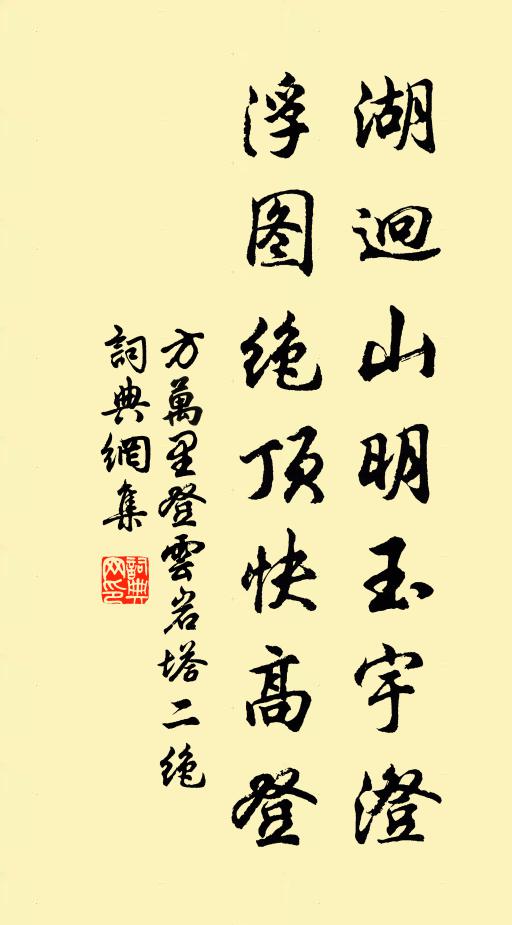 湖迥山明玉宇澄
浮图绝顶快高登
方萬里登雲岩塔二絶
詞典網集
詞典网印